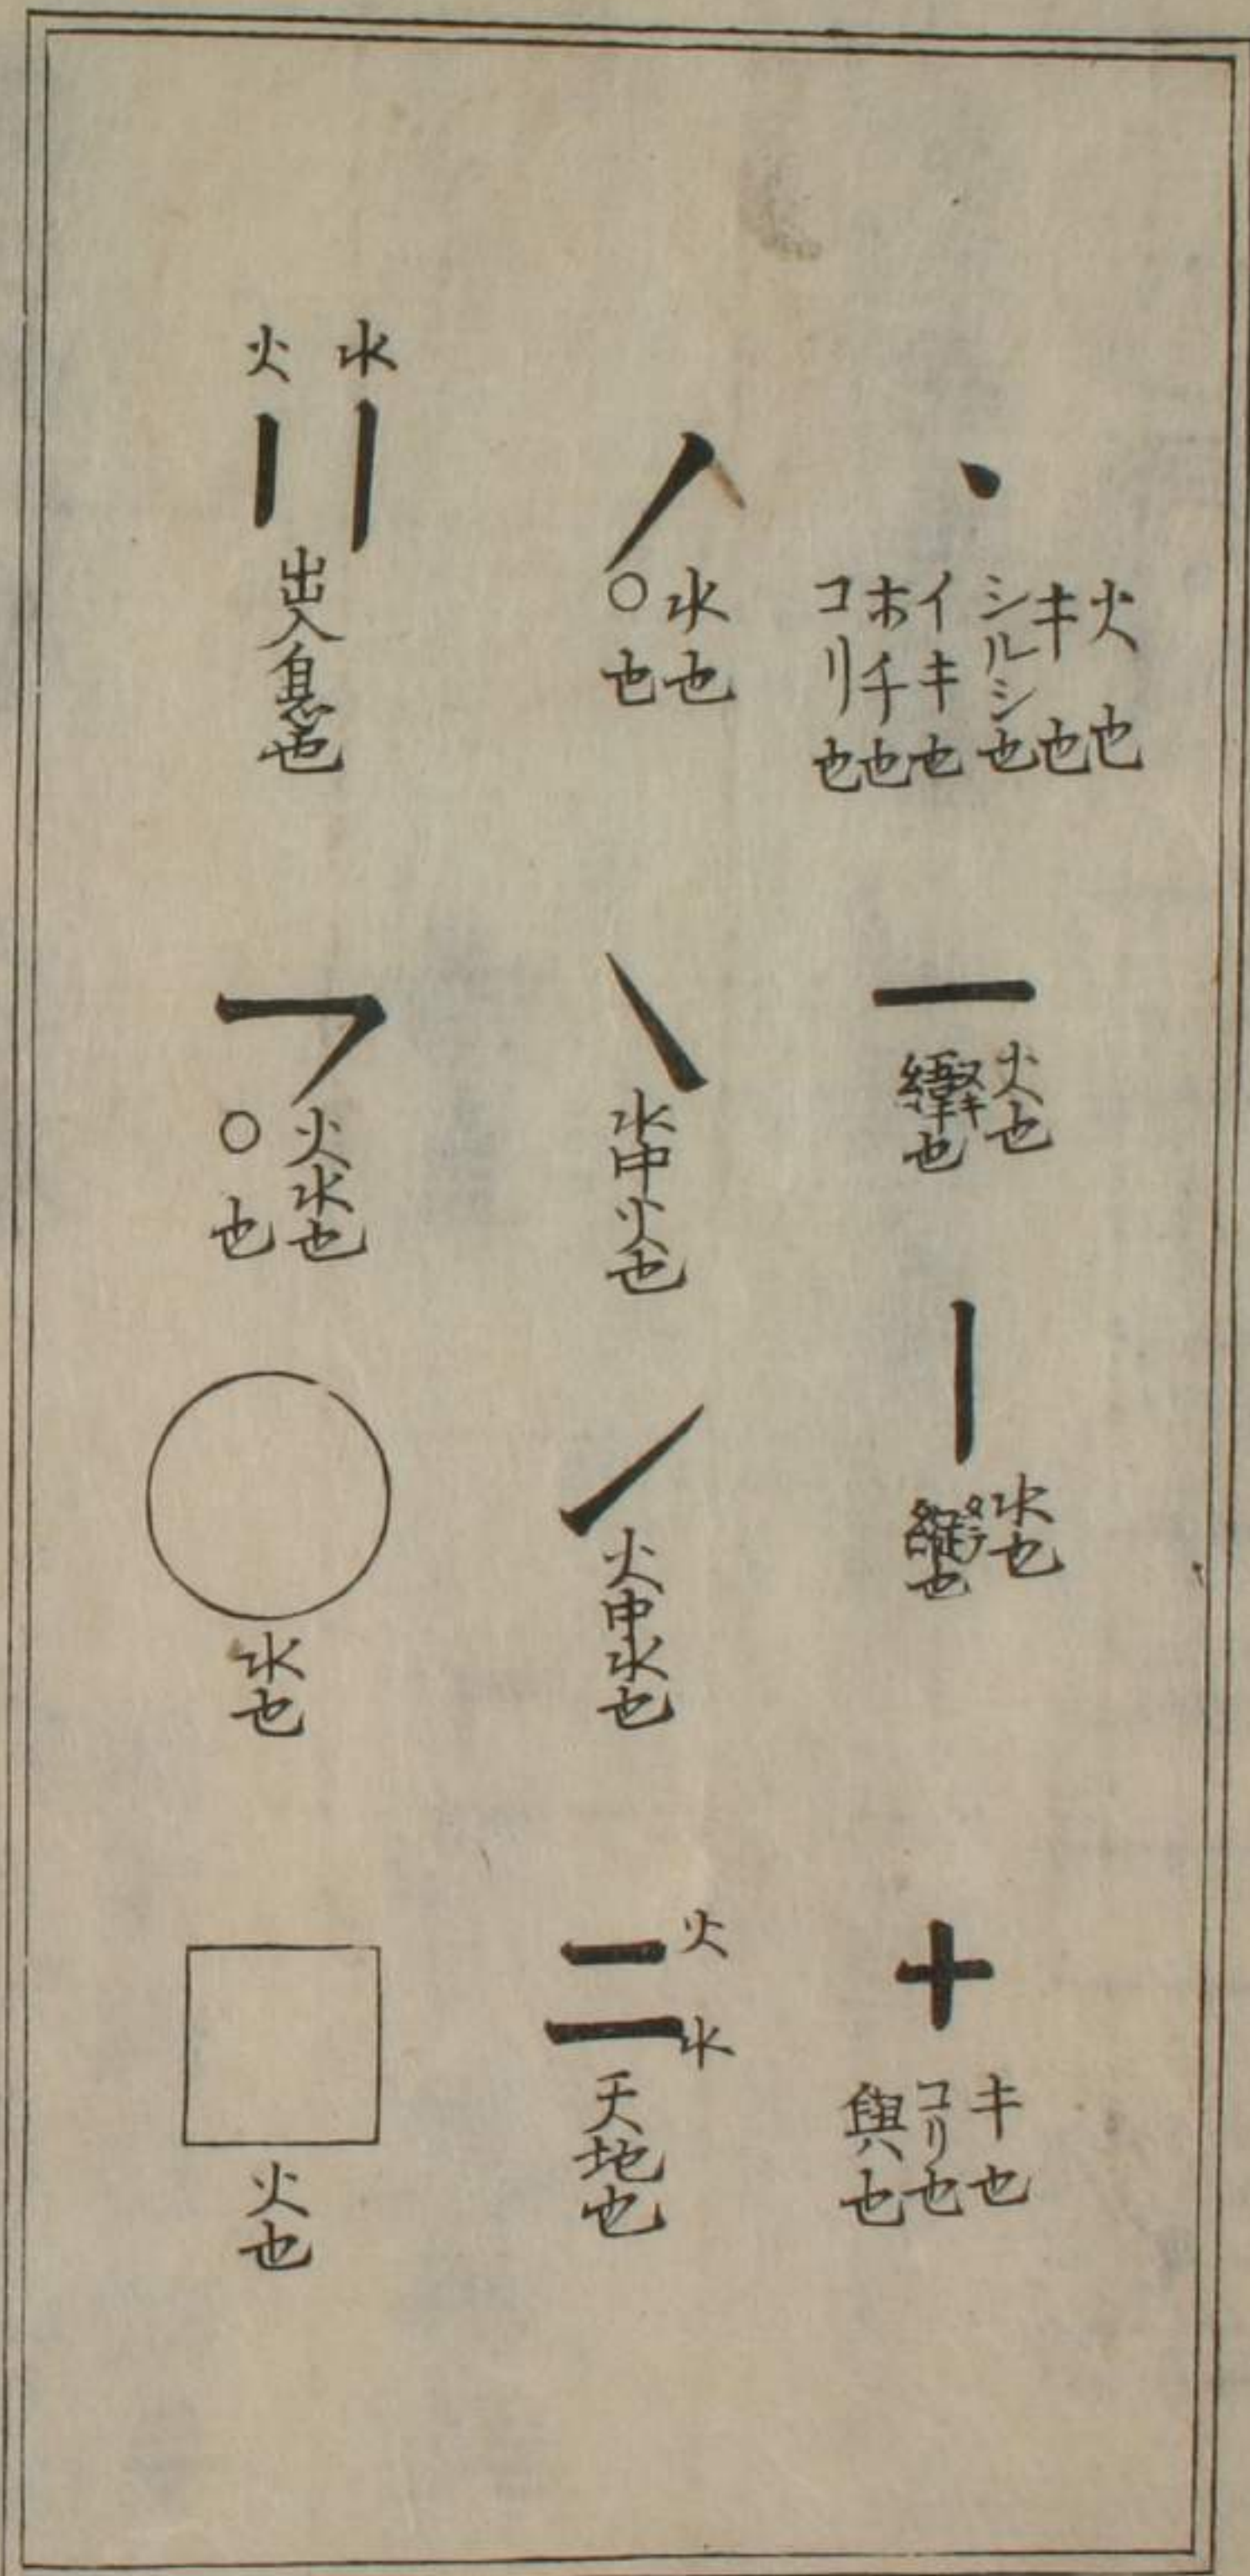 火也
キ也
シルシ也
イキ也
ホチ也
コリ也
火也
緯也
ヌキ
水也
縦也
タテ
キ也
コリ也
與也
水也
○也
水中火也
火中水也
火
水
天地也
水
火
出入息也
火水也
○也
水也
火也